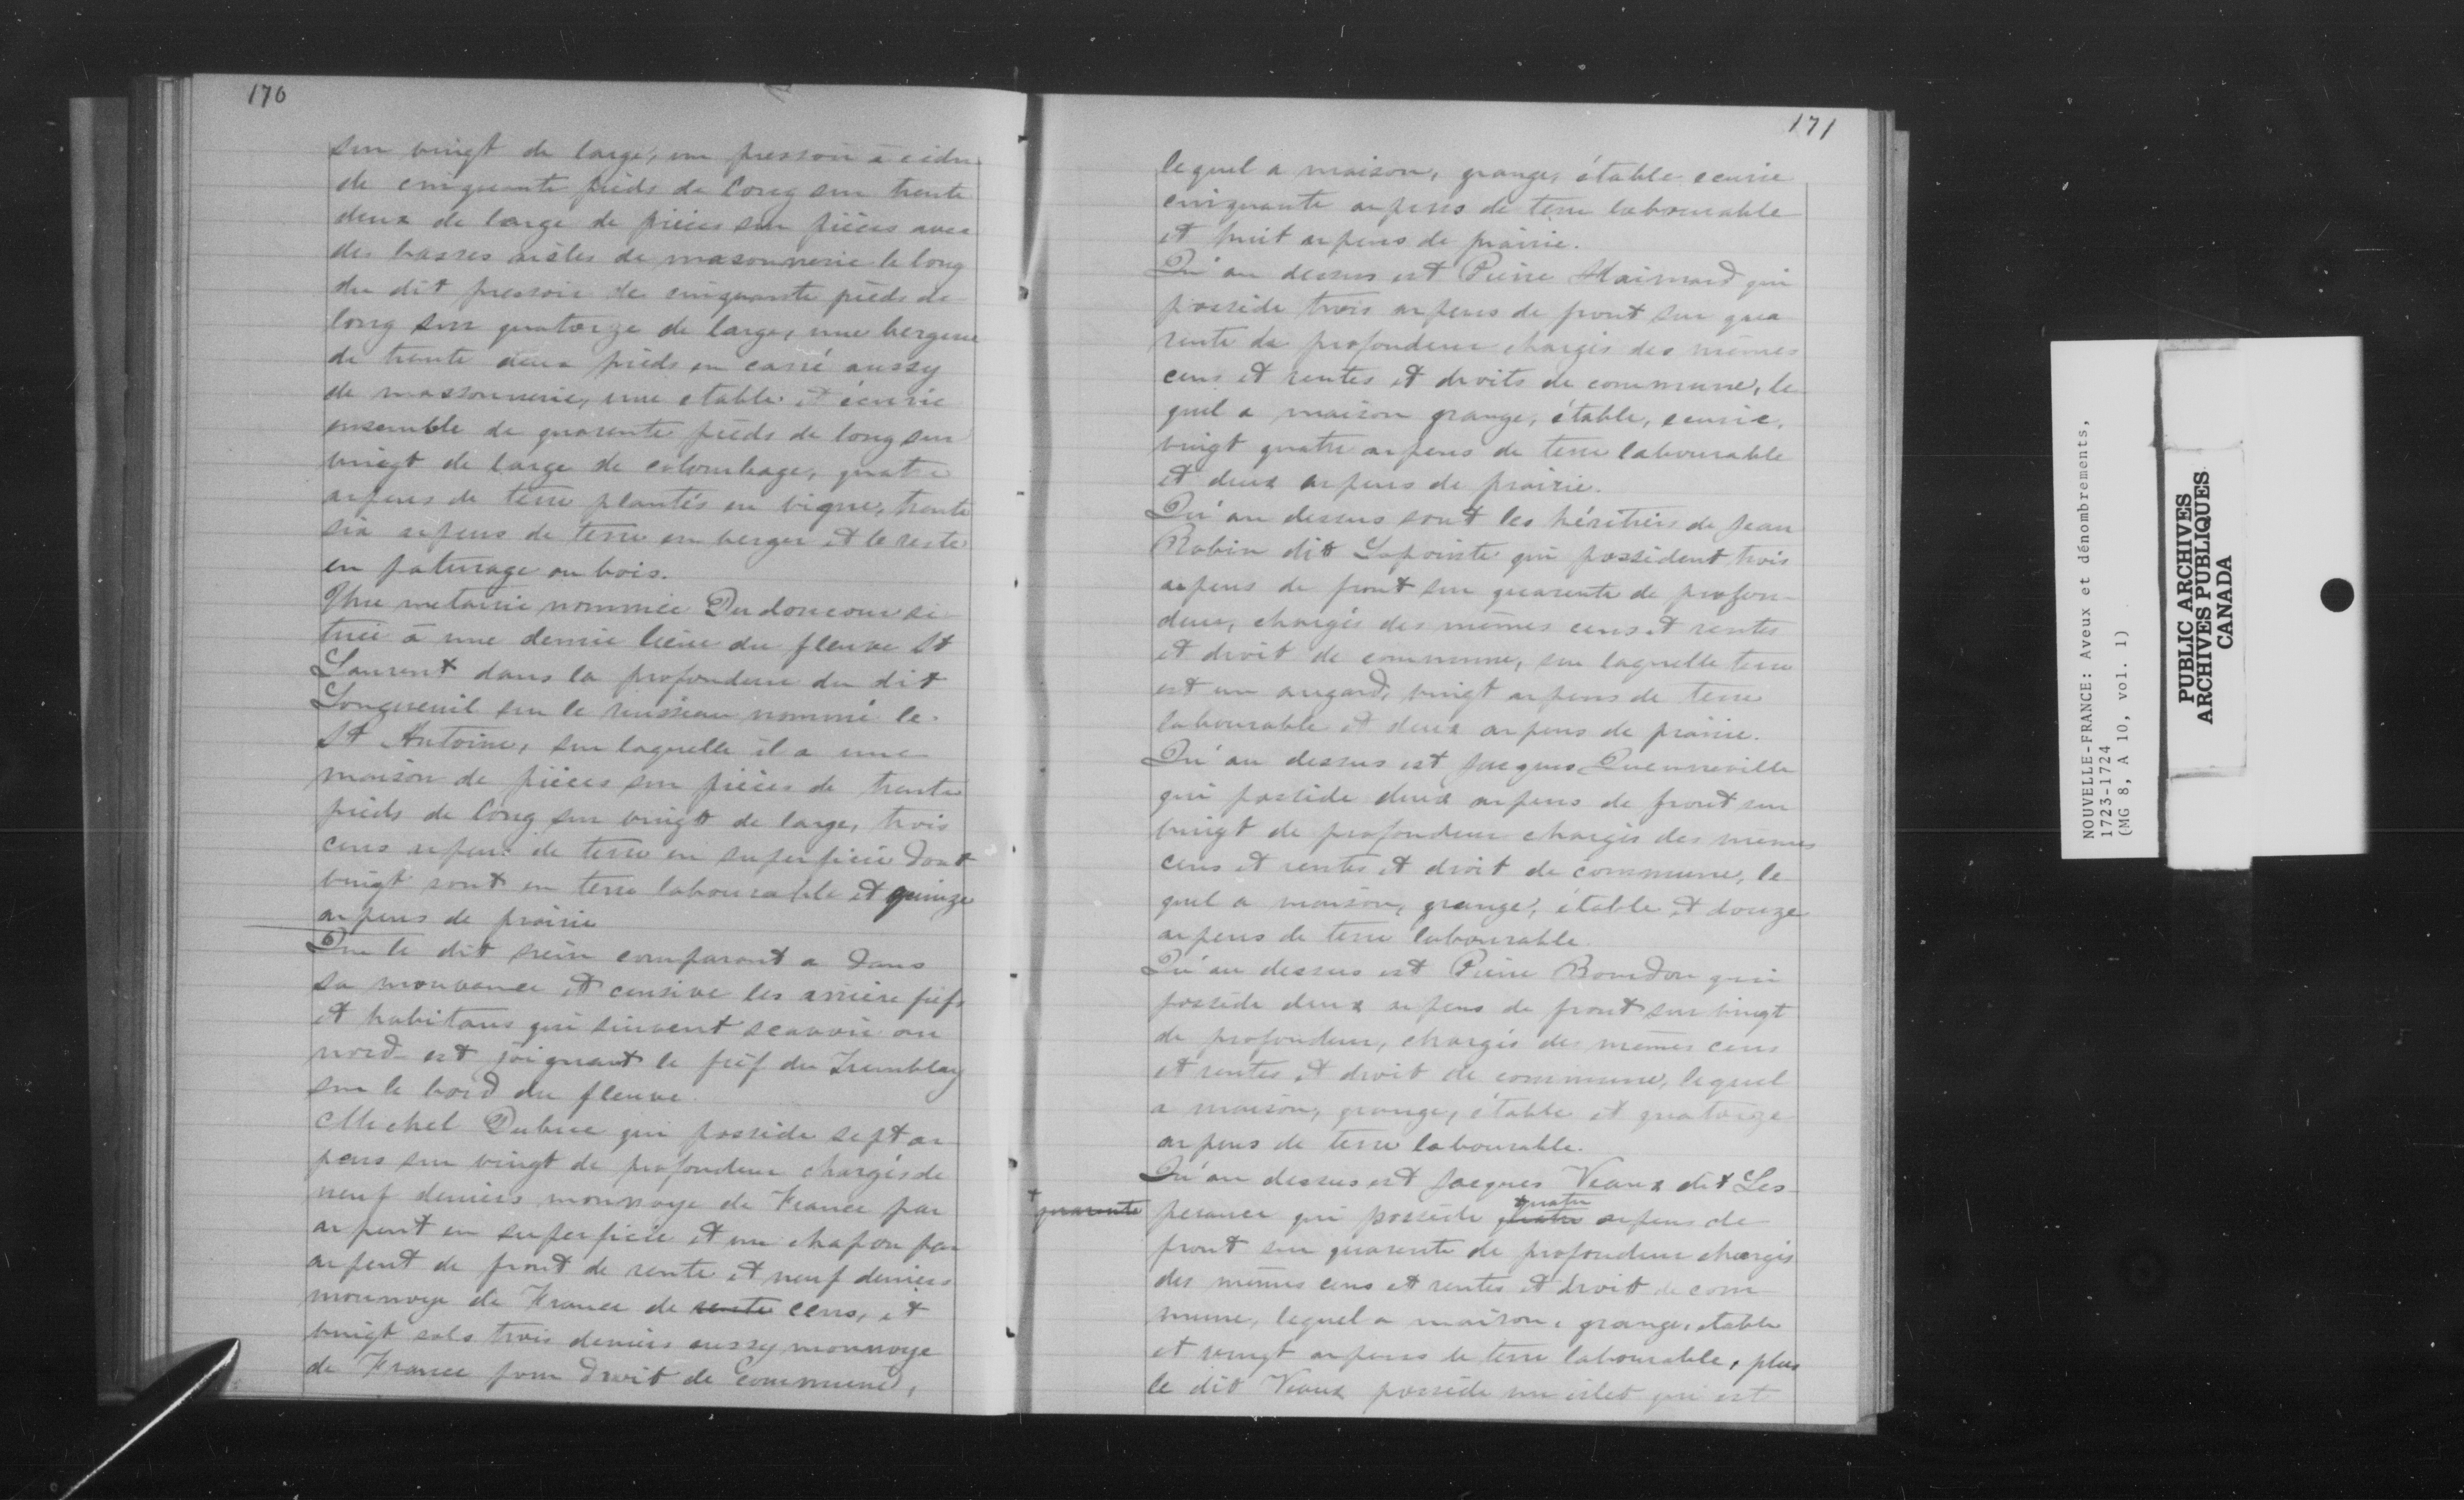 170
sur vingt de large, un pressoir à cidre
de cinquante pieds de long sur trente
deux de large de pièces sur pièces avec
des basses aisles de masonnerie le long
du dit pressoir de cinquante pieds de
long sur quatorze de large, une bergerie
de trente deux pieds en carré aussy
de massonnerie, une etable et écurie
ensemble de quarente pieds de long sur
vingt de large de colombage, quatre
arpens de terre plantés en vigne, trente
six arpens de terre en verger et le reste
en paturage ou bois.
Une metairie nommée Du doncour si
tuée à une demie lieue du fleuve St
Laurent dans la profondeur du dit
Longueuil sur le ruisseau nommé le
St Antoine, sur laquelle il a une
maison de pièces sur pièces de trente
pieds de long sur vingt de large, trois
cens arpens de terre en superficie dont
vingt sont en terre labourable et quinze
arpens de prairie
Que le dit sieur comparant a dans
sa mouvance et censive les arrière fiefs
et habitans qui suivent scavoir au
nord-est joignant le fief du Tremblay
sur le bord du fleuve.
Michel Dubuc qui possède sept ar
pens sur vingt de profondeur chargés de
neuf deniers monnoye de France par
arpent en superficie et un chapon par
arpent de front de rente et neuf deniers
monnoye de France de rente cens, et
vingt sols trois deniers aussy monnoye
de France pour droit de Commune,
171
lequel a maison, grange, étable ecurie
cinquante arpens de terre labourable
et huit arpens de prairie.
Qu'au dessus est Pierre Maimard qui
possède trois arpens de front sur qua
rente de profondeur chargés des mêmes
cens et rentes et droits de commune, le
quel a maison grange, étable, ecurie,
vingt quatre arpens de terre labourable
et deux arpens de prairie.
Qu'au dessus sont les héritiers de Jean
Robin dit Lapointe qui possèdent trois
arpens de front sur quarente de profon-
deur, chargés des mêmes cens et rentes
et droit de commune, sur laquelle terre
est un angard, vingt arpens de terre
labourable et deux arpens de prairie.
Qu'au dessus est Jacques Quenneville
qui possède deux arpens de front sur
vingt de profondeur chargés des memes
cens et rentes et droit de commune, le
quel a maison, grange, étable et douze
arpens de terre labourable.
Qu'au dessus est Pierre Bourdon qui
possède deux arpens de front sur vingt
de profondeur, chargés des mêmes cens
et rentes et droit de commune, lequel
a maison, grange, étable et quatorze
arpens de terre labourable.
Qu'au dessus est Jacques Viaux dit Les-
quatre
+ quarente perance qui possède quatre arpens de
front sur quarente de profondeur chargés
des mêmes cens et rentes et droit de com
mune, lequel a maison, grange, etable
et vingt arpens de terre labourable, plus
le dit Viaux possède un islet qui est
NOUVELLE-FRANCE: Aveux et dénombrements,
1723-1724
(MG 8, A 10, vol. 1)
PUBLIC ARCHIVES
ARCHIVES PUBLIQUES
CANADA